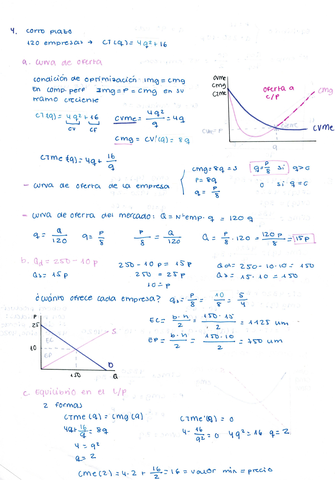 4. corto plazo
120 empresas → CT(q) = 4q² + 16
a. curva de oferta
condición de optimización img = cmg
en comp. perf Img = p = cmg en su
tramo creciente
CT(q) = 4q² + 16
CV CF
CVMe = 4q²/q = 4q
cmg = CV'(q) = 8q
CTMe(q) = 4q + 16/q
CVMe
CMg
CTMe
oferta a
c/p
cmg
CVMe
q
- curva de oferta de la empresa
cmg = 8q = p
p = 8q
q = p/8
q = p/8 si q>0
0 si q=0
- curva de oferta del mercado: Q = Nºemp · q = 120q
q = Q/120 q = p/8 p/8 = Q/120 Q = p/8 · 120 = 120p/8 = 15p
b. Qd = 250 - 10p
Qs = 15p
250 - 10p = 15p
250 = 25p
10 = p
Qd = 250 - 10·10 = 150
Qs = 15·10 = 150
¿cuánto ofrece cada empresa? qs = p/8 = 10/8 = 5/4
P
25
10
EC
EP
S
D
150
Q
EC = b·h/2 = 150·15/2 = 1125 um
EP = b·h/2 = 150·10/2 = 750 um
c. Equilibrio en el L/P
2 formas
CTMe(q) = CMg(q)
4q + 16/q = 8q
4 = q²
q = 2
CTMe'(q) = 0
4 - 16/q² = 0 4q² = 16 q = 2
CMe(2) = 4·2 + 16/2 = 16 = valor min = precio